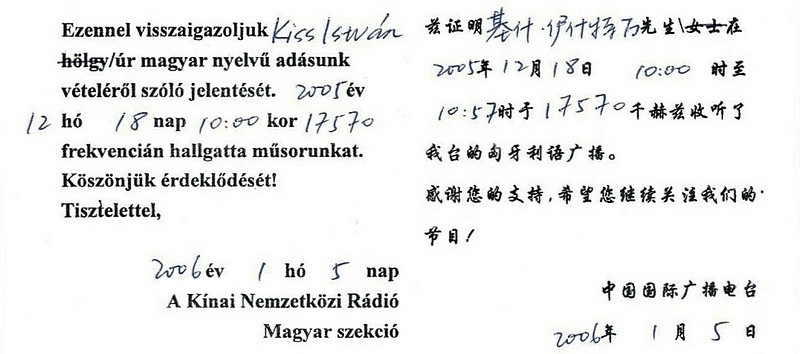 Ezennel visszaigazoljuk Kiss István
hölgy/úr magyar nyelvű adásunk
vételéről szóló jelentését. 2005 év
12 hó 18 nap 10:00 kor 17570
frekvencián hallgatta műsorunkat.
Köszönjük érdeklődését!
Tisztelettel,
2006 év 1 hó 5 nap
A Kínai Nemzetközi Rádió
Magyar szekció
兹证明基什·伊什特万先生\女士在
2005年12月18日 10:00 时至
10:57时于17570千赫兹收听了
我台的匈牙利语广播。
感谢您的支持,希望您继续关注我们的
节目!
中国国际广播电台
2006年 1月 5日